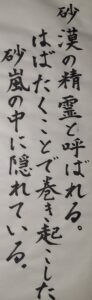 砂漠の精霊と呼ばれる。
はばたくことで巻き起こした
砂嵐の中に隠れている。